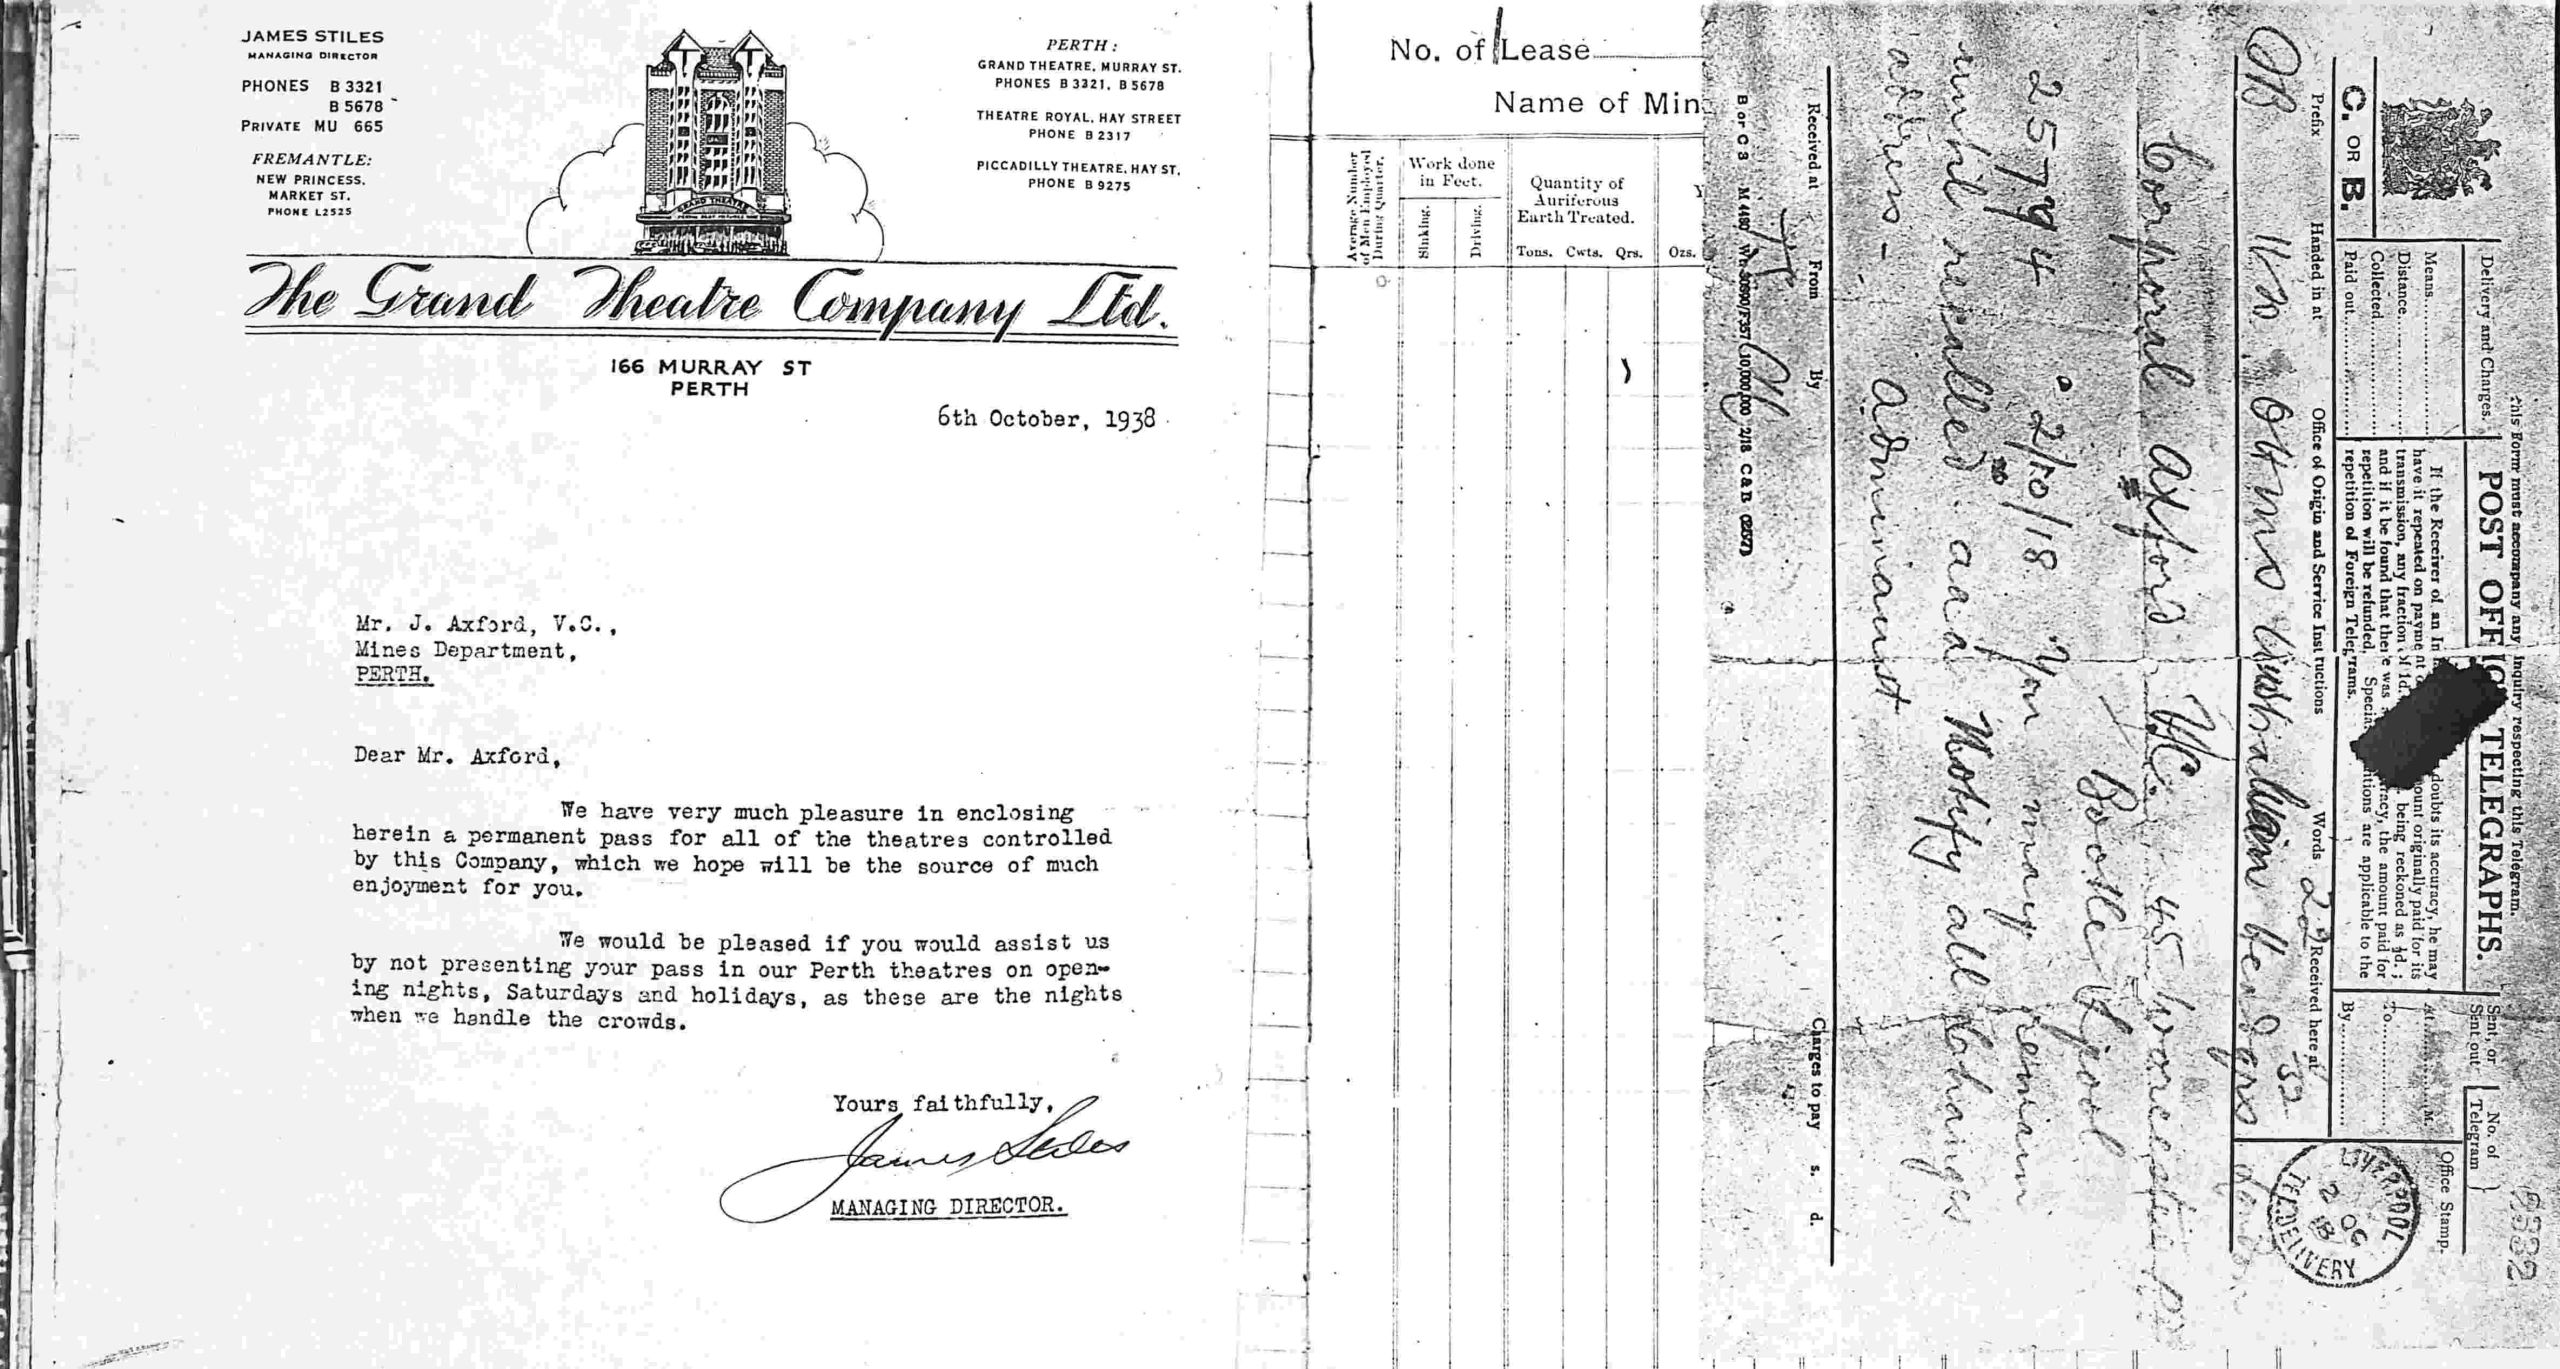 JAMES STILES
MANAGING DIRECTOR
PHONES B 3321
B 5678
PRIVATE MU 665
FREMANTLE:
NEW PRINCESS,
MARKET ST.
PHONE L2525
GRAND THEATRE
PERTH:
GRAND THEATRE, MURRAY ST.
PHONES B 3321, B 5678
THEATRE ROYAL, HAY STREET
PHONE B 2317
PICCADILLY THEATRE, HAY ST,
PHONE B 9275
The Grand Theatre Company Ltd.
166 MURRAY ST
PERTH
6th October, 1938
Mr. J. Axford, V.C.,
Mines Department,
PERTH.
Dear Mr. Axford,
We have very much pleasure in enclosing
herein a permanent pass for all of the theatres controlled
by this Company, which we hope will be the source of much
enjoyment for you.
We would be pleased if you would assist us
by not presenting your pass in our Perth theatres on open-
ing nights, Saturdays and holidays, as these are the nights
when we handle the crowds.
Yours faithfully,
James Stiles
MANAGING DIRECTOR.
No. of Lease
Name of Min
Average Number
of Men Employed
During Quarter.
Work done
in Feet.
Sinking.
Driving.
Quantity of
Auriferous
Earth Treated.
Tons. Cwts. Qrs.
Ozs.
This Form must accompany any inquiry respecting this Telegram.
POST OFFIC TELEGRAPHS.
C. OR B.
Delivery and Charges.
Means
Distance
Collected
Paid out
If the Receiver of an In doubts its accuracy, he may
have it repeated on payment ount originally paid for its
transmission, any fraction of 1d. being reckoned as ½d.;
and if it be found that there was racy, the amount paid for
repetition will be refunded. Special itions are applicable to the
repetition of Foreign Telegrams.
Sent, or
Sent out
At M.
To
By
No. of
Telegram
Office Stamp.
LIVERPOOL
2 OC
18
TELEDELIVERY
Prefix Handed in at Office of Origin and Service Instructions Words 22 Received here at
OB 11.20 Australian Headqrs
Corporal Axford VC 45 Worcester
Bootle Lpool
25794 2/10/18 You may remain
until recalled aaa Notify all changes
address - Adminaust
Received at From By Charges to pay s. d.
B or C 3
10,000,000 2/18 C & B